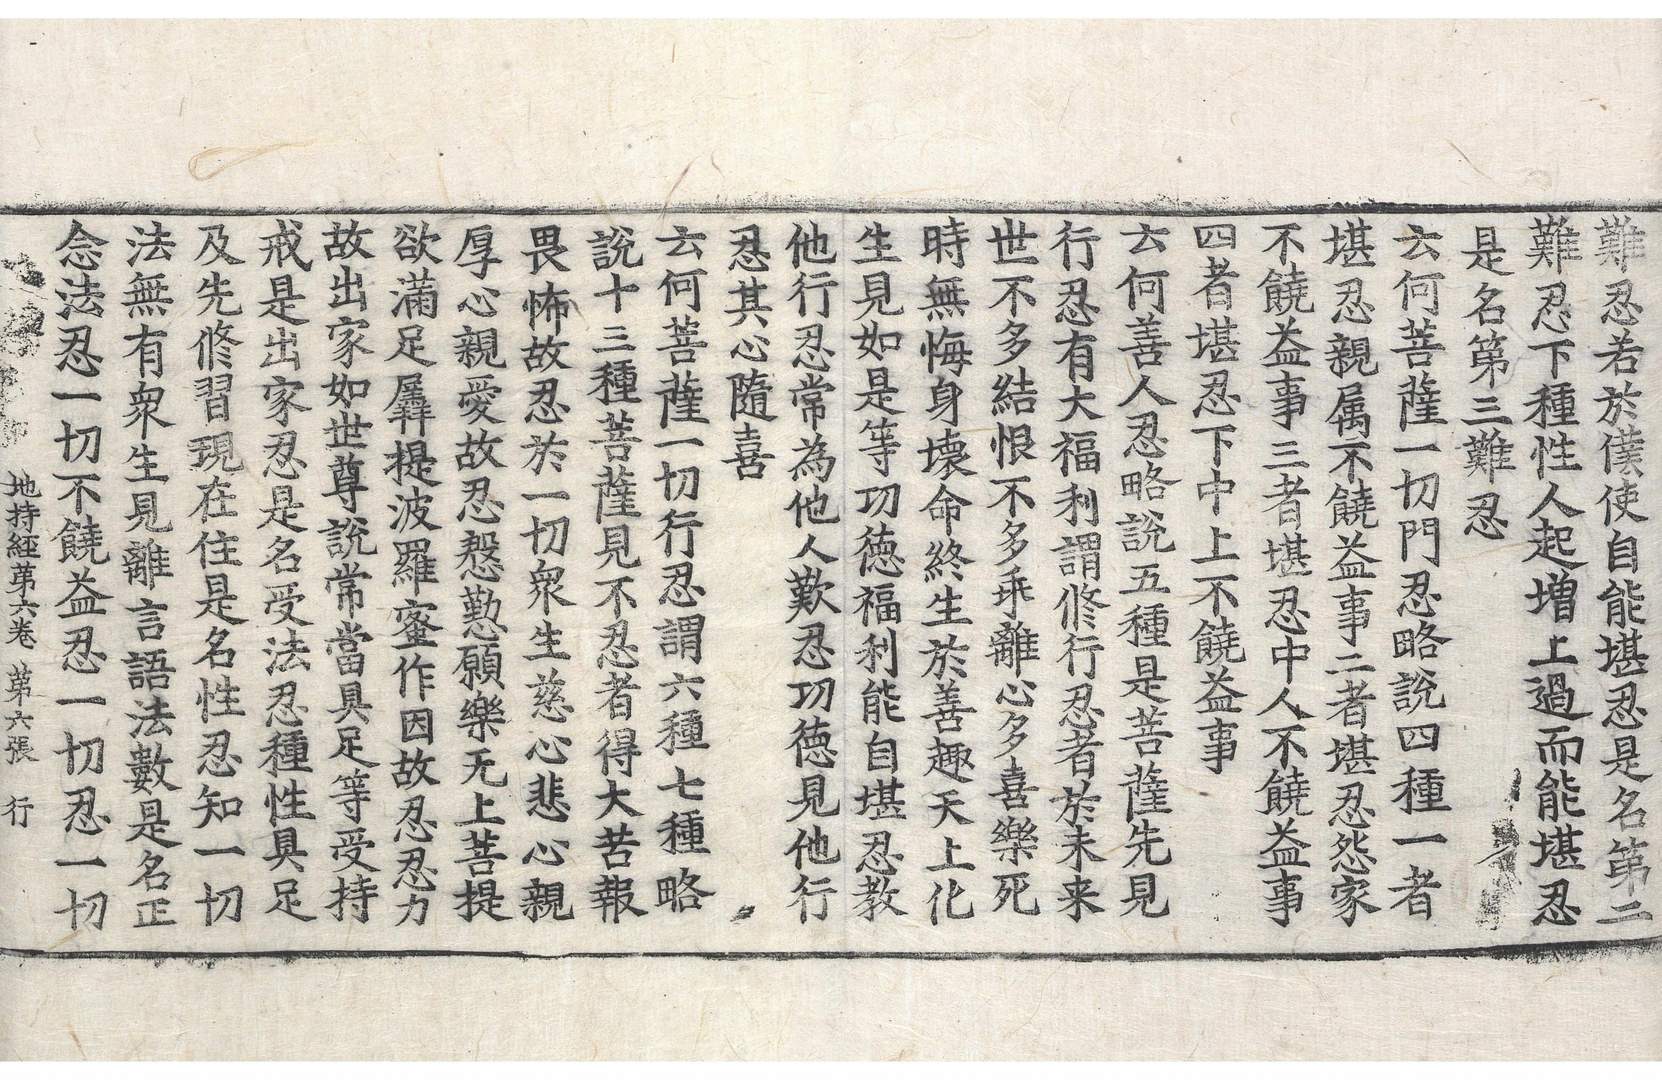 難忍若於僕使自能堪忍是名第二
難忍下種性人起增上過而能堪忍
是名第三難忍
云何菩薩一切門忍略說四種一者
堪忍親属不饒益事二者堪忍怨家
不饒益事三者堪忍中人不饒益事
四者堪忍下中上不饒益事
云何善人忍略說五種是菩薩先見
行忍有大福利謂修行忍者於未来
世不多結恨不多乖離心多喜樂死
時無悔身壞命終生於善趣天上化
生見如是等功德福利能自堪忍教
他行忍常為他人歎忍功德見他行
忍其心隨喜
云何菩薩一切行忍謂六種七種略
說十三種菩薩見不忍者得大苦報
畏怖故忍於一切衆生慈心悲心親
厚心親愛故忍慇懃願樂无上菩提
欲滿足羼提波羅蜜作因故忍忍力
故出家如世尊說常當具足等受持
戒是出家忍是名受法忍種性具足
及先修習現在住是名性忍知一切
法無有衆生見離言語法數是名正
念法忍一切不饒益忍一切忍一切
地持經第六卷 第六張 行